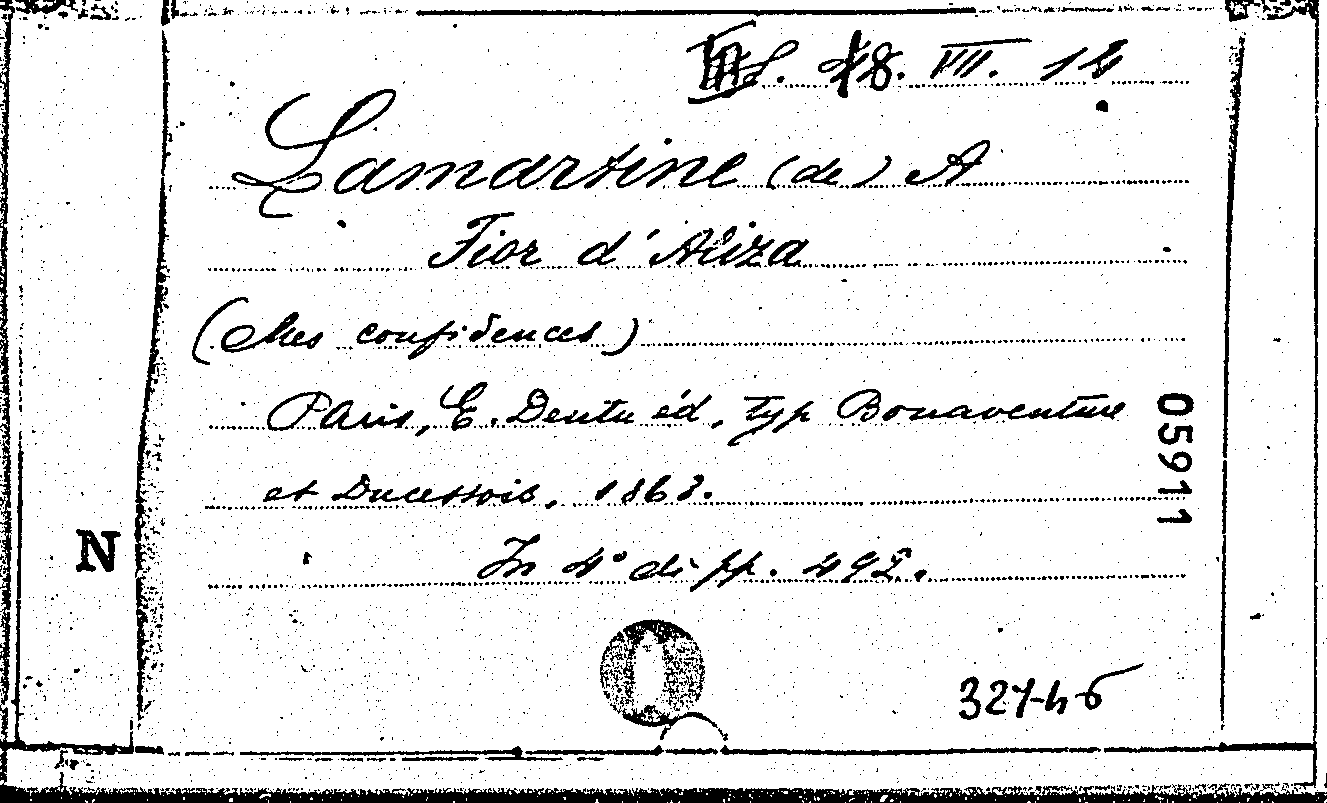 S. 18. VII. 14
Lamartine (de) A
Fior d'Aliza
(Mes confidences)
Paris, E. Dentu éd, typ Bonaventure
et Ducessois, 1863.
In 4° di pp. 492.
05911
N